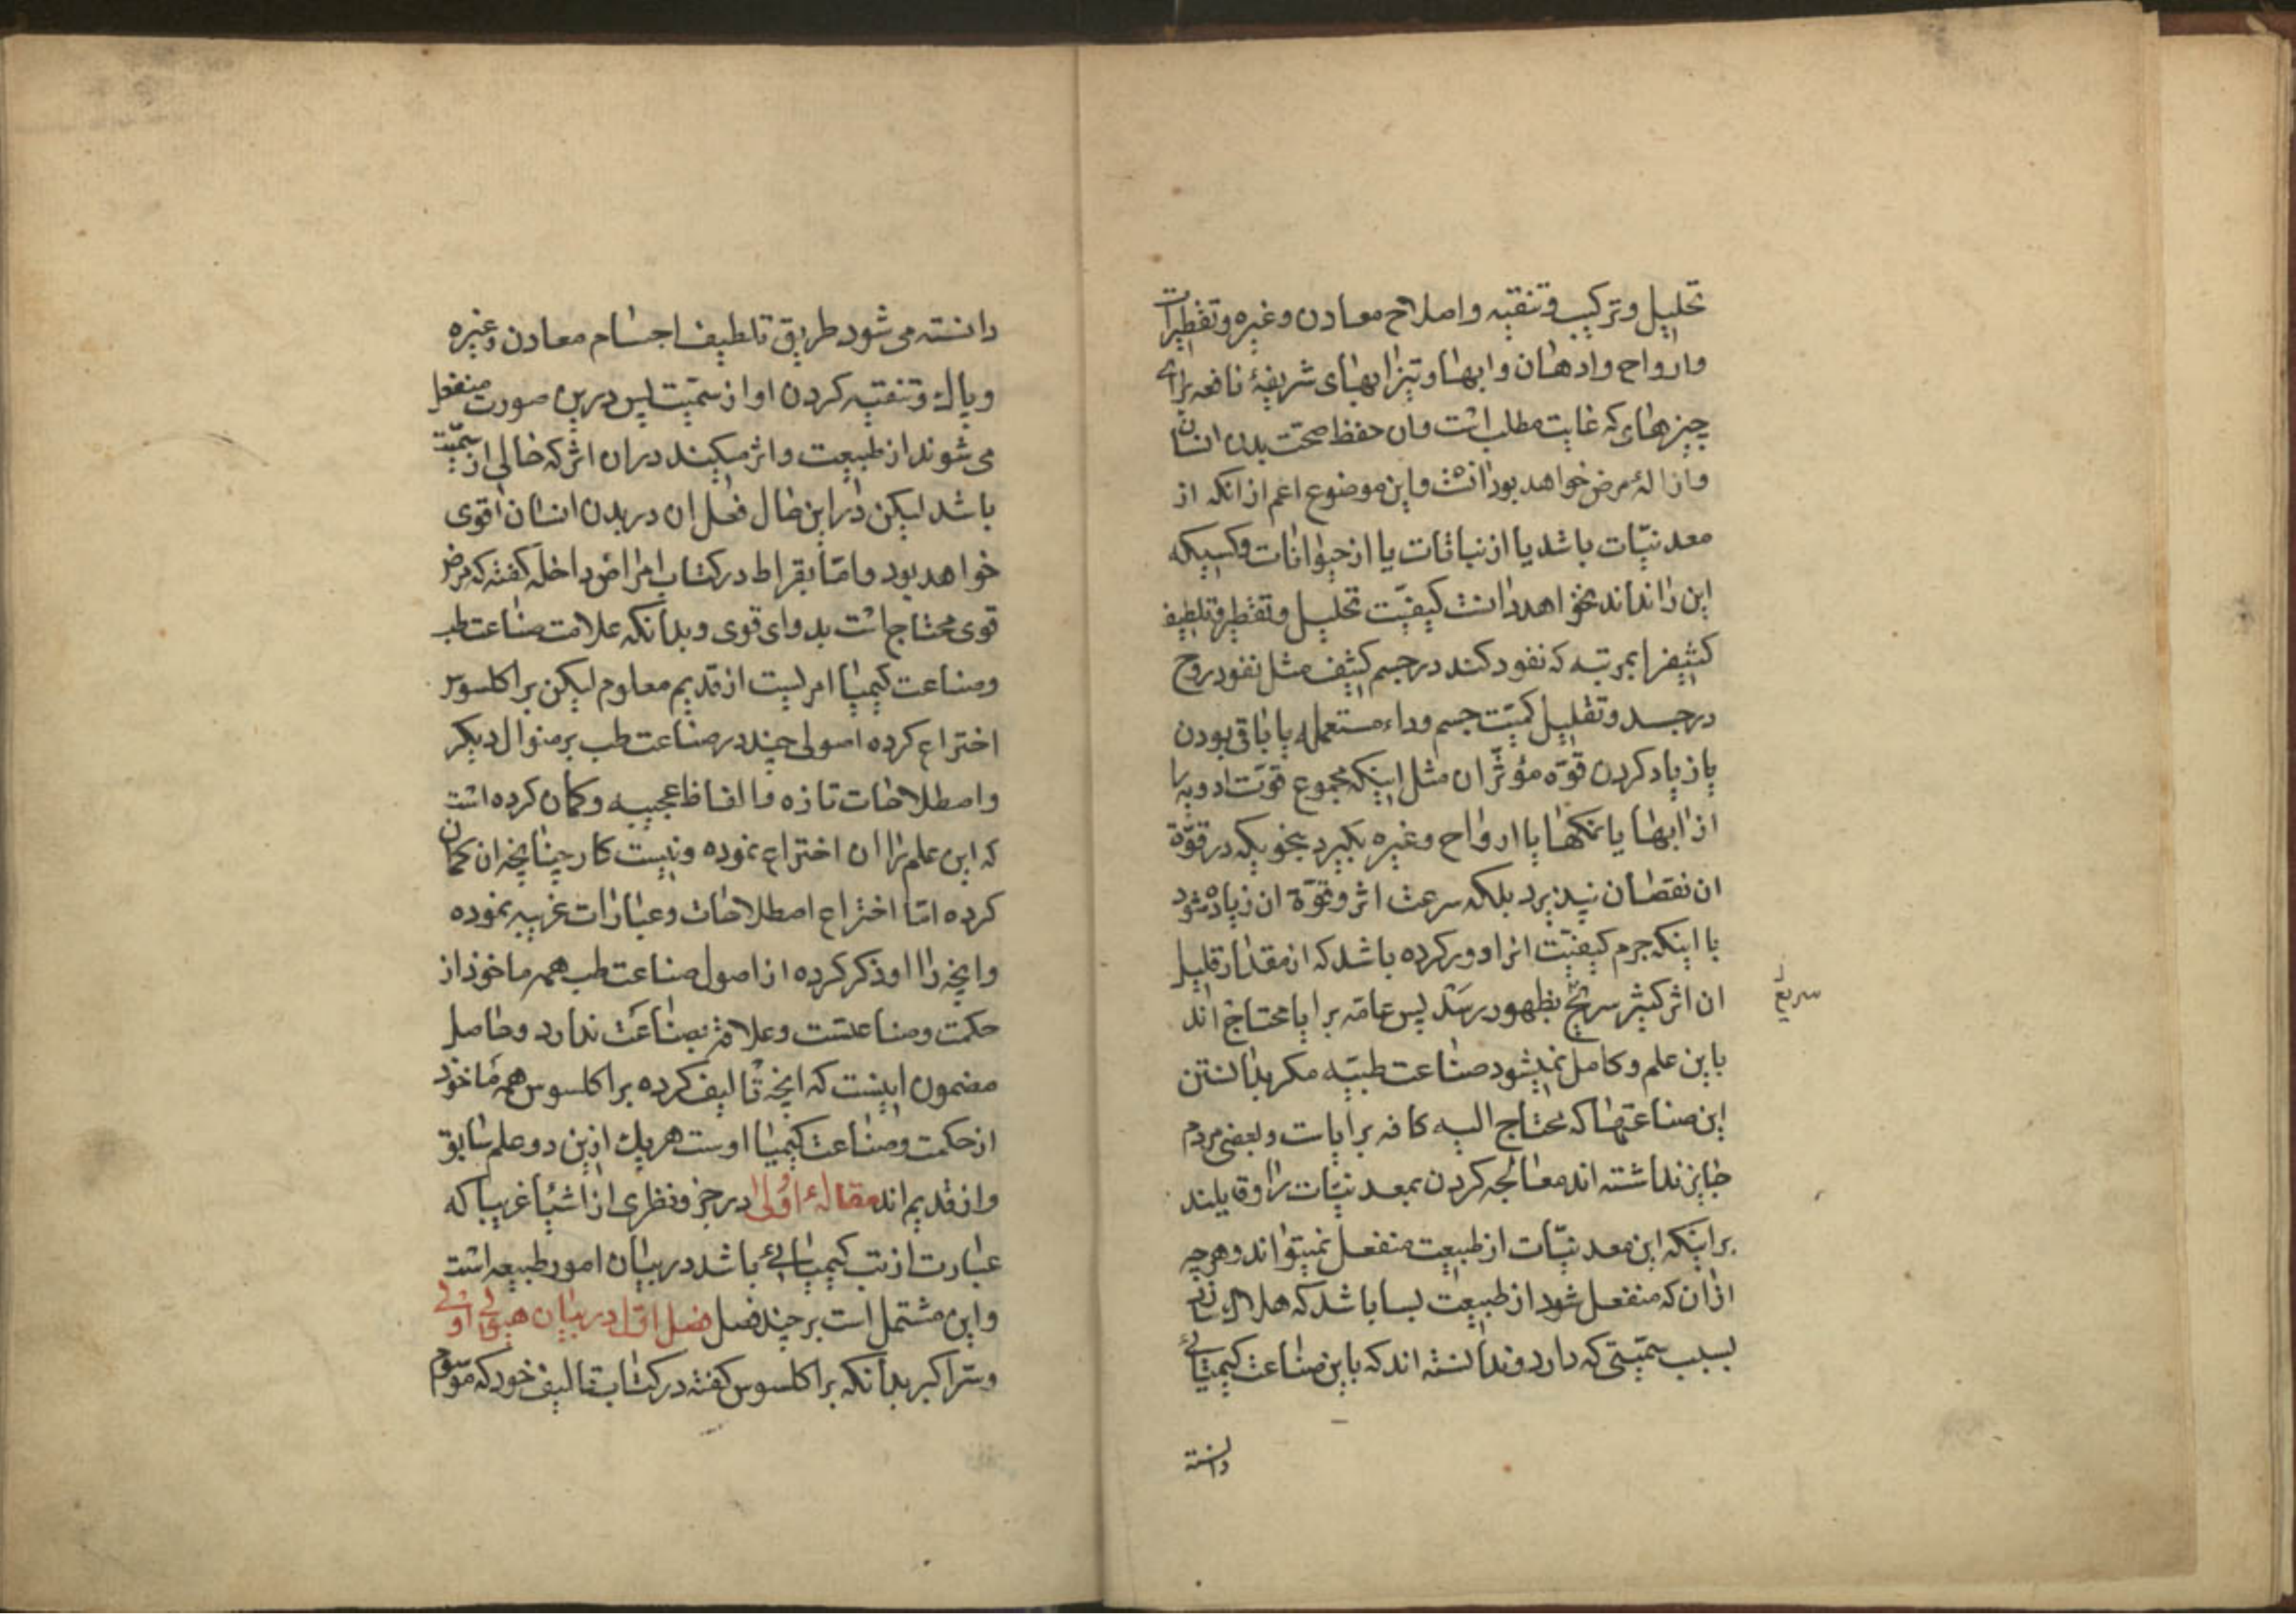 تحلیل و ترکیب و تنقیه و اصلاح معادن و غیره و تقطیرات
و ارواح و ادهان و ابها و تیزابهای شریفهٔ نافعه برای
چیزهای که غایت مطلب است و ان حفظ صحّت بدن انسان
و ازالهٔ مرض خواهد بود انشه و این موضوع اعم از انکه از
معدنیّات باشد یا از نباتات یا از حیوانات و کسیکه
این را نداند نخواهد دانست کیفیّت تحلیل و تقطیر و تلطیف
کثیفرا بمرتبه که نفود کند در جسم کثیف مثل نفود روح
در جسد و تقلیل کمیّت جسم و داء مستعمله یا باقی بودن
یا زیاد کردن قوّه مؤثّر ان مثل اینکه مجموع قوّت ادویه را
از ابها یا نمکها یا ارواح و غیره بکیرد بنحویکه در قوّة
ان نقصان نپذیرد بلکه سرعت اثر و قوّة ان زیاده شود
با اینکه جرم کیفیّت انرا دور کرده باشد که از مقدار قلیل
ان اثر کثیر سریع بظهور رسد پس عامّه برایا محتاج اند
سریع
باین علم و کامل نمیشود صناعت طبیّه مکر بدانستن
این صناعتها که محتاج الیه کافه برایات و بعضی مردم
جایز نداشته اند معالجه کردن بمعدنیّات را و قایلند
براینکه این معدنیّات از طبیعت منفعل نمیتواند و هرچه
ازان که منفعل شود از طبیعت بسا باشد که هلاک
بسبب سمّیتی که دارد و ندانسته اند که باین صناعت کیمیائی
دانسته
دانسته می شود طریق تلطیف اجسام معادن و غیره
و پاک و تنقیه کردن او از سمّیت پس درین صورت منفعل
می شوند از طبیعت و اثر میکنند دران اثر که خالی از سمّیت
باشد لیکن در این حال فعل ان در بدن انسان اقوی
خواهد بود و امّا بقراط در کتاب امراض داخله کفته که مرض
قوی محتاج است بدوای قوی و بدانکه علامت صناعت طب
و صناعت کیمیا امریست از قدیم معلوم لیکن براکلسوس
اختراع کرده اصولی چند در صناعت طب بر منوال دیکر
و اصطلاحات تازه و الفاظ عجیبه و کمان کرده است
که این علم را ان اختراع نموده و نیست کار چنانچه ان کمان
کرده امّا اختراع اصطلاحات و عبارات غریبه نموده
و انچه را او ذکر کرده از اصول صناعت طب همه ماخوذ از
حکمت و صناعتست و علامة بصناعت ندارد و حاصل
مضمون اینست که انچه تالیف کرده براکلسوس همه ماخوذ
از حکمت و صناعت کیمیا اوست هریک ازین دو علم سابق
و از قدیم اند مقالهٔ اولی در جزو نظری از اشیا غریبا که
عبارت از تب کیمیائی باشد در بیان امور طبیعه است
و این مشتمل است بر چند فصل فصل اوّل در بیان هیولی اولی
و سرّ اکبر بدانکه براکلسوس کفته در کتاب تالیف خود که موسوم